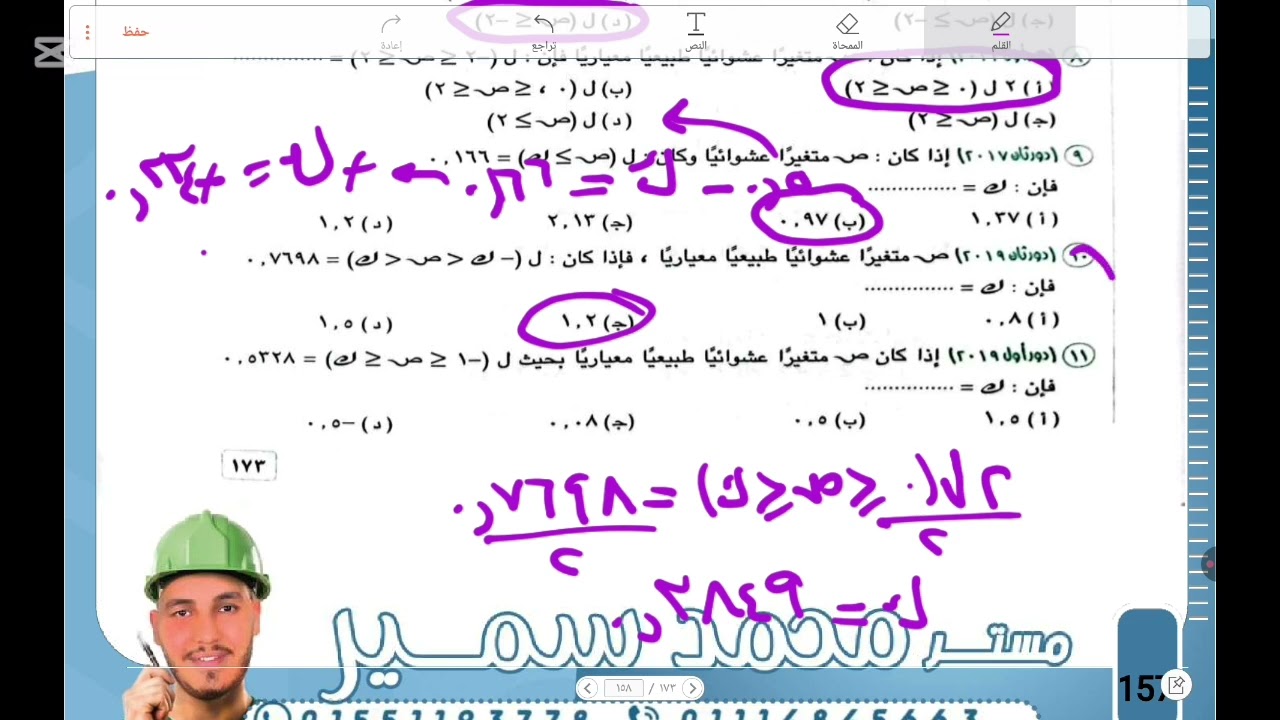 حفظ
إعادة
تراجع
النص
الممحاة
القلم
(ج) ل (ص ≥ -٢)
(د) ل (ص ≤ -٢)
إذا كان : ص متغيرًا عشوائيًا طبيعيًا معياريًا فإن : ل (-٢ ≤ ص ≤ ٢) = ..............
(أ) ٢ ل (٠ ≤ ص ≤ ٢)
(ب) ل (٠ ، ≤ ص ≤ ٢)
(ج) ل (ص ≤ ٢)
(د) ل (ص ≥ ٢)
٩ (دورثان ٢٠١٧) إذا كان : ص متغيرًا عشوائيًا وكان : ل (ص ≥ ك) = ٠,١٦٦
٠,٥ - ل = ٠,١٦٦
فإن : ك = ..............
(أ) ١,٣٧
(ب) ٠,٩٧
(ج) ٢,١٣
(د) ١,٢
١٠ (دورثان ٢٠١٩) ص متغيرًا عشوائيًا طبيعيًا معياريًا ، فإذا كان : ل (- ك < ص < ك) = ٠,٧٦٩٨
فإن : ك = ..............
(أ) ٠,٨
(ب) ١
(ج) ١,٢
(د) ١,٥
١١ (دورأول ٢٠١٩) إذا كان ص متغيرًا عشوائيًا طبيعيًا معياريًا بحيث ل (-١ ≤ ص ≤ ك) = ٠,٥٣٢٨
فإن : ك = ..............
(أ) ١,٥
(ب) ٠,٥
(ج) ٠,٠٨
(د) -٠,٥
١٧٣
٢ ل (٠ ≤ ص ≤ ك) = ٠,٧٦٩٨
٢ ٢
ل = ٠,٣٨٤٩
مستر محمد سمير
١٥٨ / ١٧٣
157